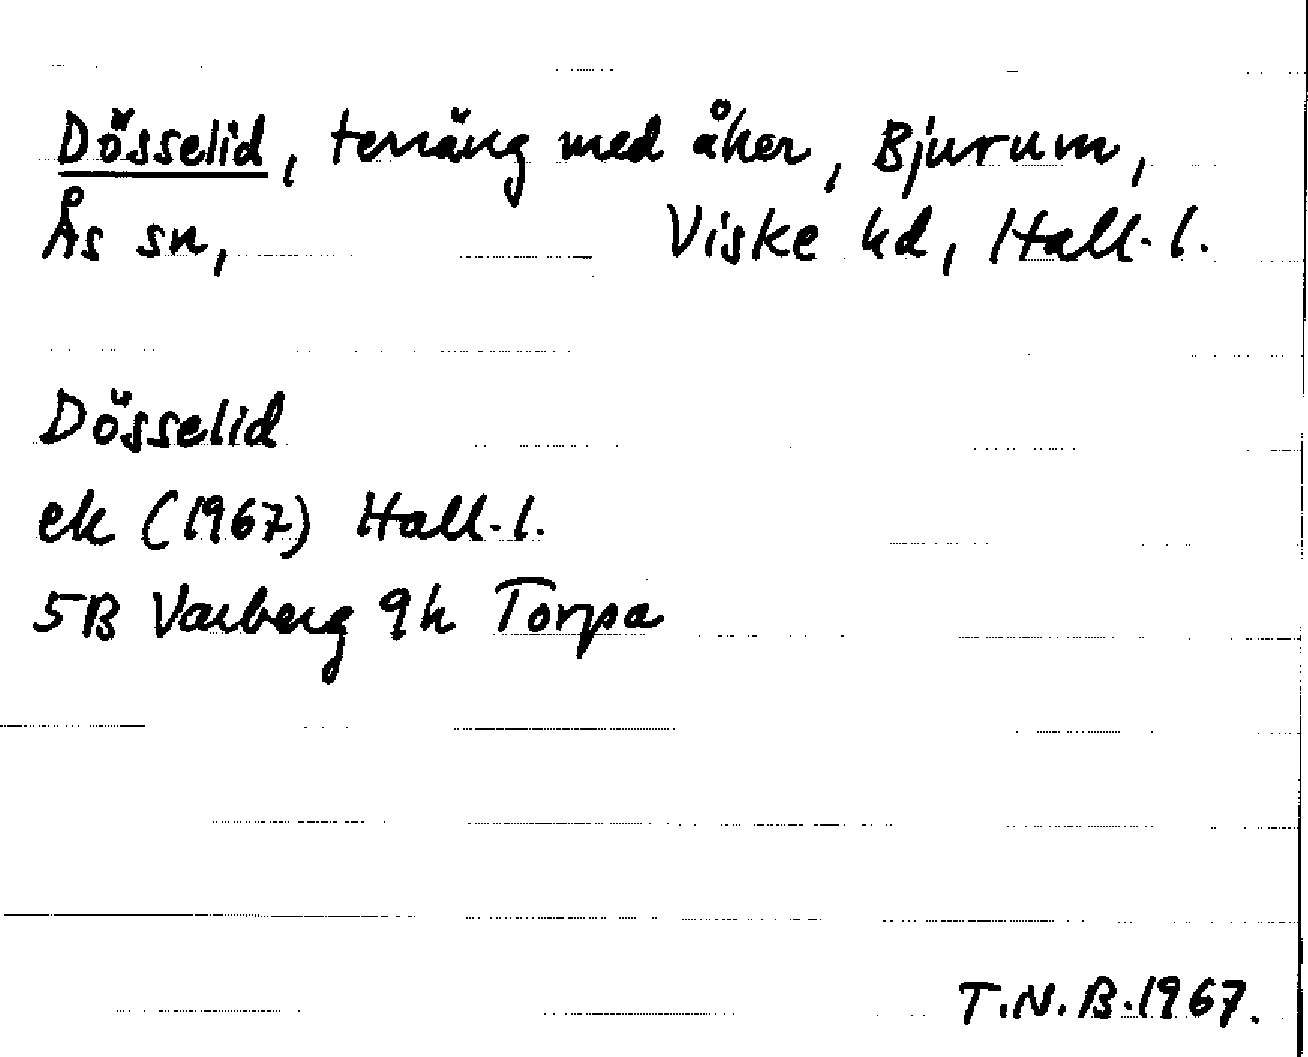 Dösselid, terräng med åker, Bjurum,
Ås sn, Viske hd, Hall. l.
Dösselid
ek (1967) Hall. l.
5B Varberg 9h Torpa
T.N.B. 1967.